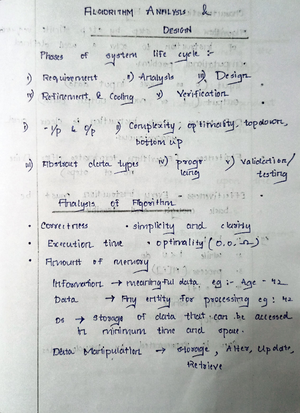 ALGORITHM ANALYSIS &
DESIGN
Phases of system life cycle :-
i) Requirement ii) Analysis iii) Design
iv) Refinement & Coding v) Verification
i) - I/p & O/p ii) Complexity, optimality, topdown,
bottom up
iii) Abstract data types iv) v) Validation/
testing
Analysis of Algorithm
• Correctness • simplicity and clarity
• Execution time • optimality (O, Θ, Ω)
• Amount of memory
Information → meaningful data eg :- Age - 42
Data → Any entity for processing eg : 42
DS → storage of data that can be accessed
in minimum time and space.
Data Manipulation → storage, Alter, Update,
Retrieve